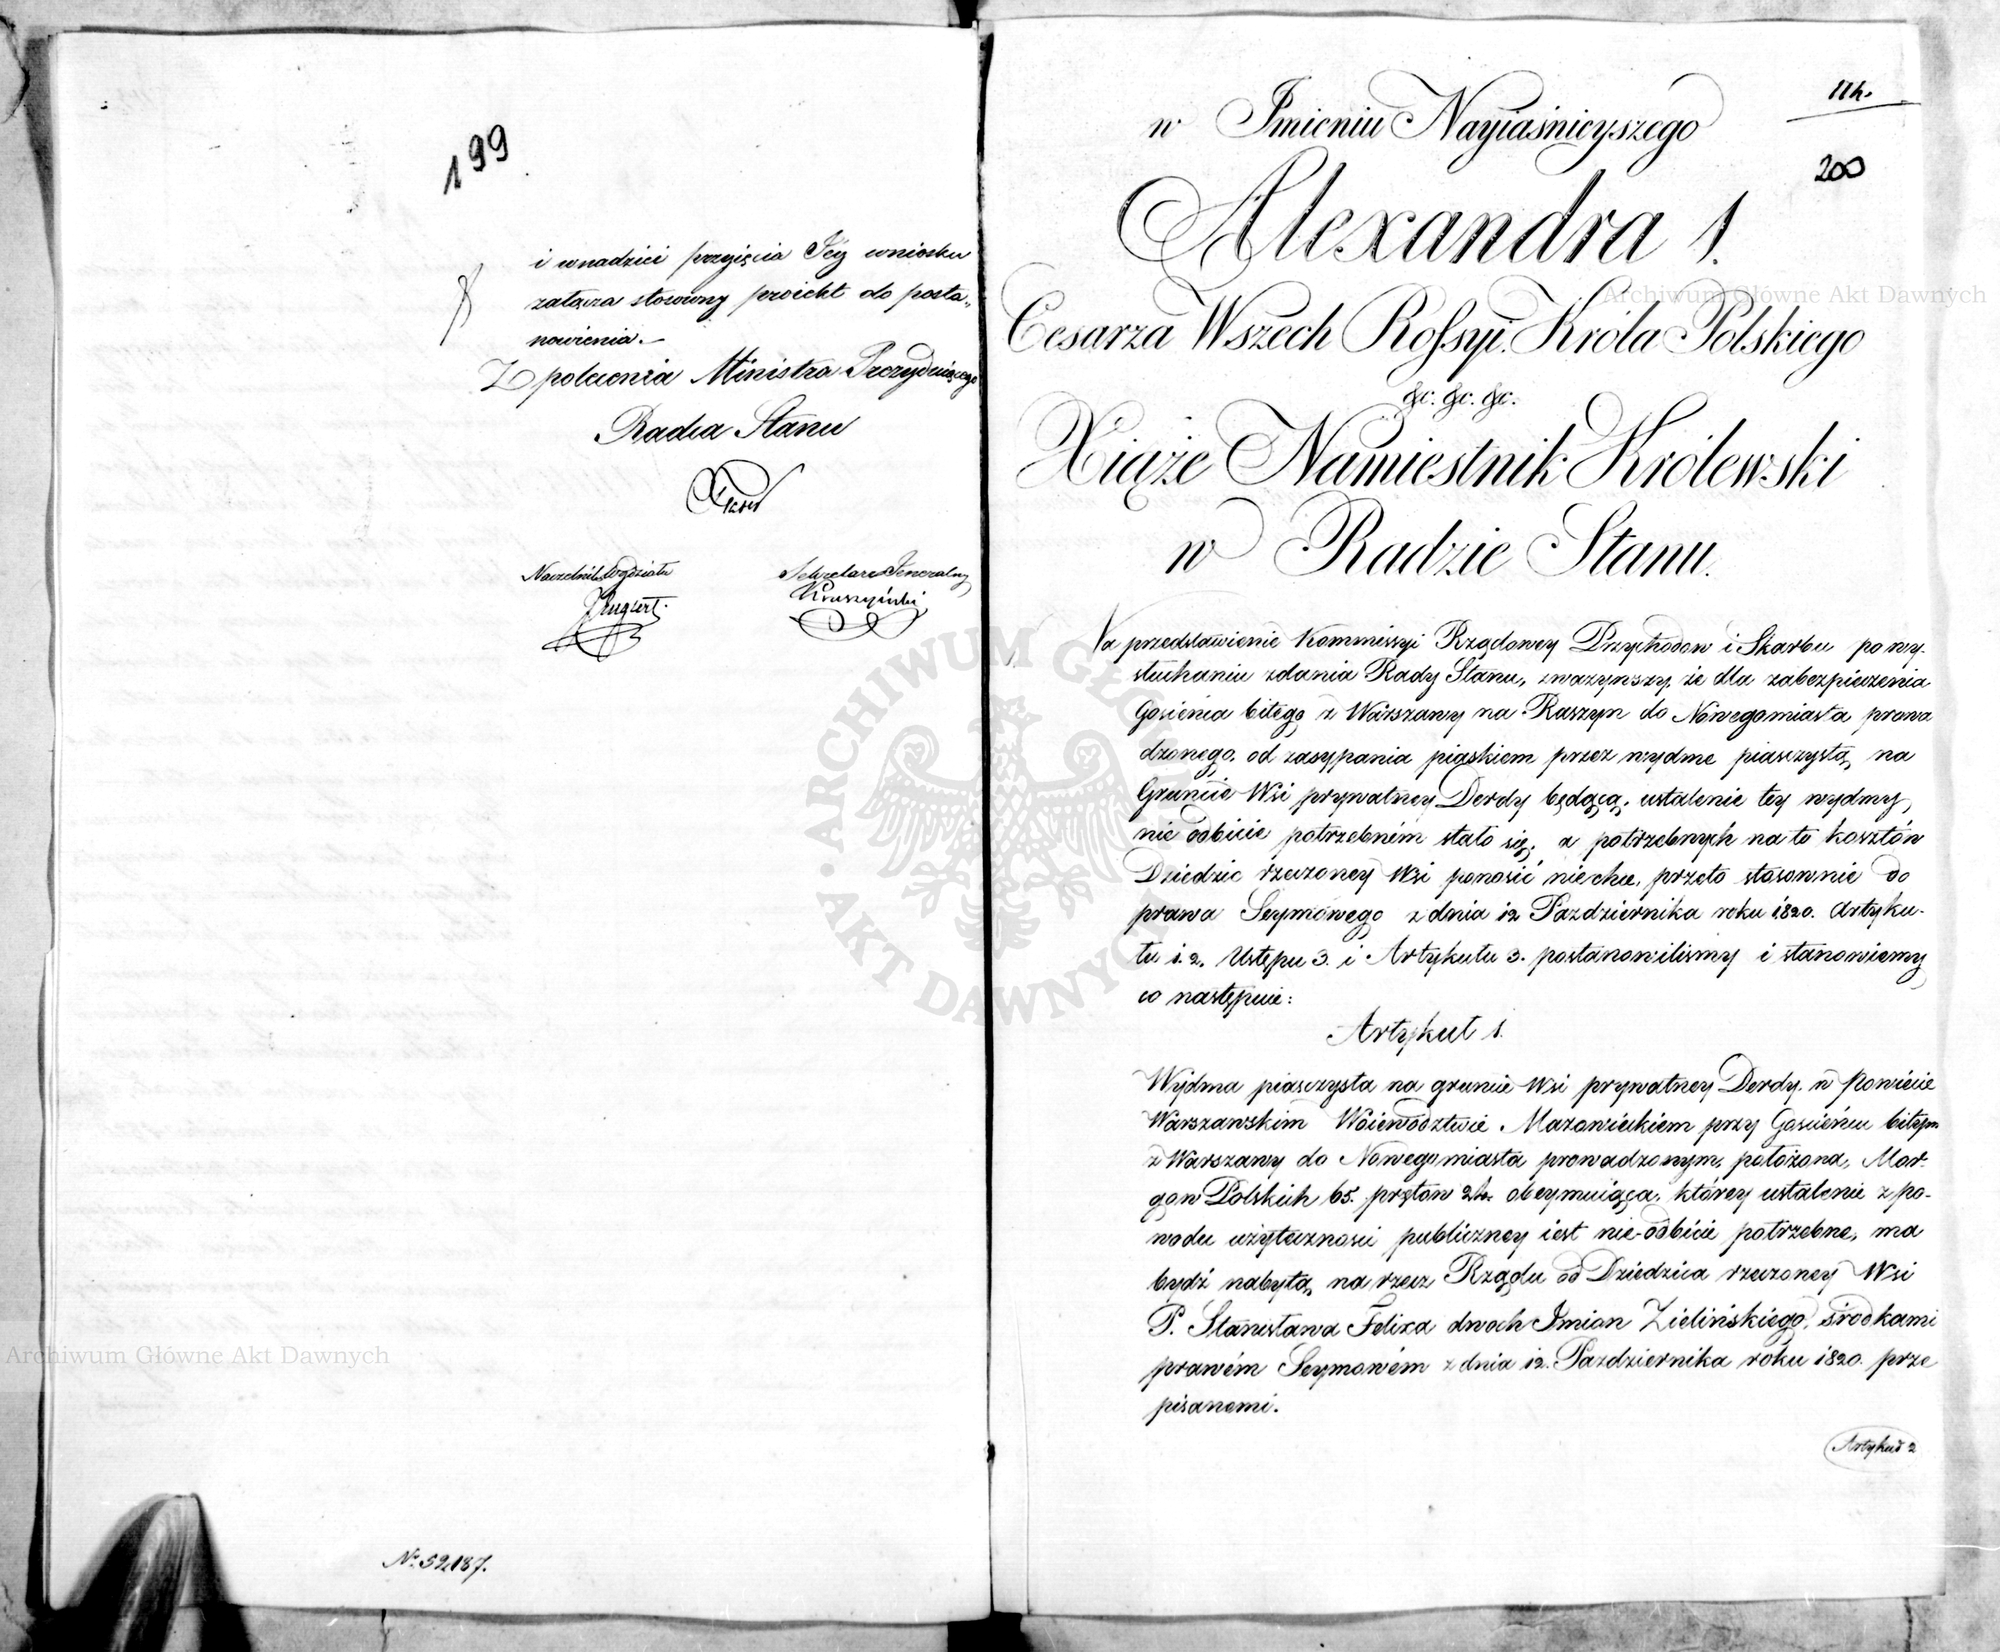 199
i w nadziei przyięcia Jey wniosku
załącza stosowny proiekt do posta„
nowienia.
Z polecenia Ministra Prezyduiącego
Radca Stanu
Naczelnik Wydziału
Sekretarz Jeneralny
Kruszyński
No 52187.
114.
200
w Imieniu Nayiaśnieyszego
Alexandra 1.
Cesarza Wszech Rossyi, Króla Polskiego
&c. &c. &c.
Xiąże Namiestnik Królewski
w Radzie Stanu.
Na przedstawienie Kommissyi Rządowey Przychodow i Skarbu po wy-
słuchaniu zdania Rady Stanu, zważywszy, że dla zabezpieczenia
Gościenia bitego z Warszawy na Raszyn do Nowegomiasta prowa
dzonego, od zasypania piaskiem przez wydmę piasczystą, na
Gruncie Wsi prywatney Derdy będącą, ustalenie tey wydmy,
nie odbicie potrzebném stało się, a potrzebnych na to kosztów
Dziedzic rzeczoney Wsi ponosić niechce, przeto stosownie do
prawa Seymowego z dnia 12 Pazdziernika roku 1820. Artyku-
łu 1. 2. Ustępu 3. i Artykułu 3. postanowiliśmy i stanowiemy
co następuie:
Artykuł 1.
Wydma piasczysta na gruncie Wsi prywatney Derdy, w Powiecie
Warszawskim Woiewodztwie Mazowieckiem przy Gościeńcu bitym
z Warszawy do Nowegomiasta prowadzonym, położona, Mor-
gow Polskich 65. prętow 24. obeymuiąca, którey ustalenie z po-
wodu użyteczności publiczney iest nie-odbicie potrzebne, ma
bydź nabytą na rzecz Rządu od Dziedzica rzeczoney Wsi
P. Stanisława Felixa dwoch Imion Zielińskiego, środkami
prawém Seymowém z dnia 12. Pazdziernika roku 1820. prze
pisanemi.
Artykuł 2
Archiwum Główne Akt Dawnych
Archiwum Główne Akt Dawnych
ARCHIWUM GŁÓWNE AKT DAWNYCH